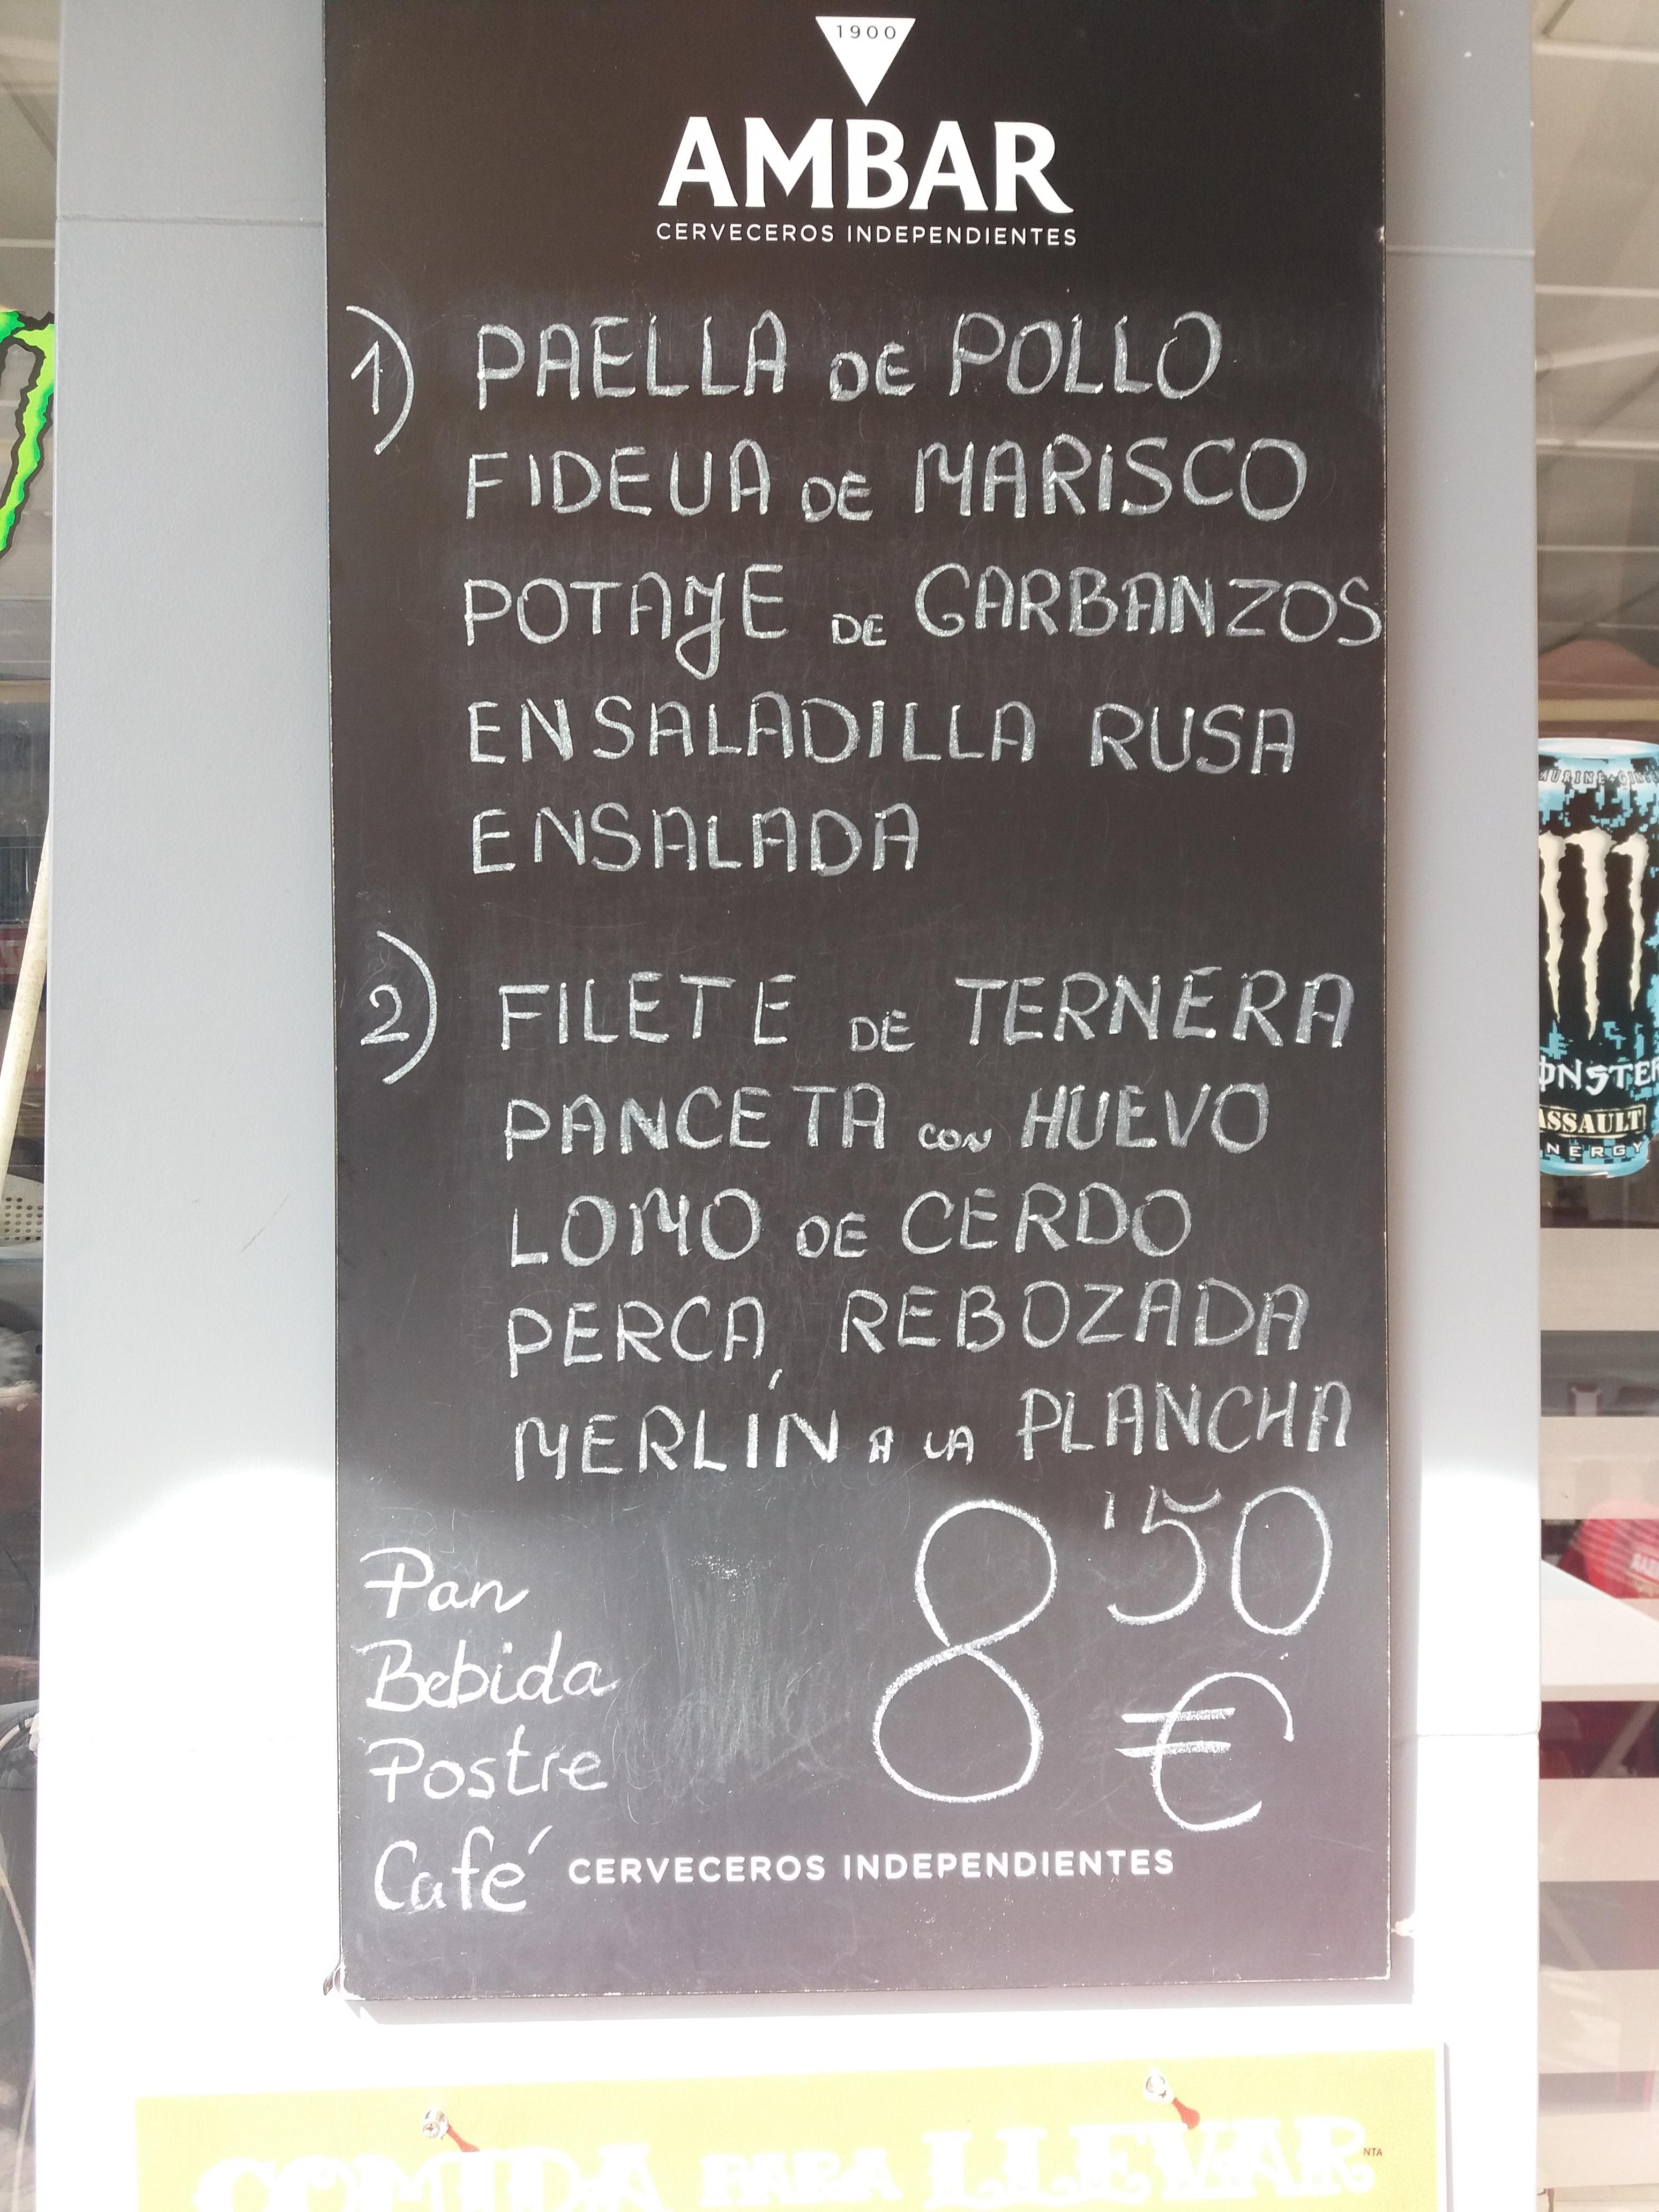 1900
AMBAR
CERVECEROS INDEPENDIENTES
1) PAELLA DE POLLO
FIDEUA DE MARISCO
POTAJE DE GARBANZOS
ENSALADILLA RUSA
ENSALADA
2) FILETE DE TERNERA
PANCETA CON HUEVO
LOMO DE CERDO
PERCA REBOZADA
MERLÍN A LA PLANCHA
8'50
€
Pan
Bebida
Postre
Café
CERVECEROS INDEPENDIENTES
COMIDA PARA LLEVAR
ASSAULT